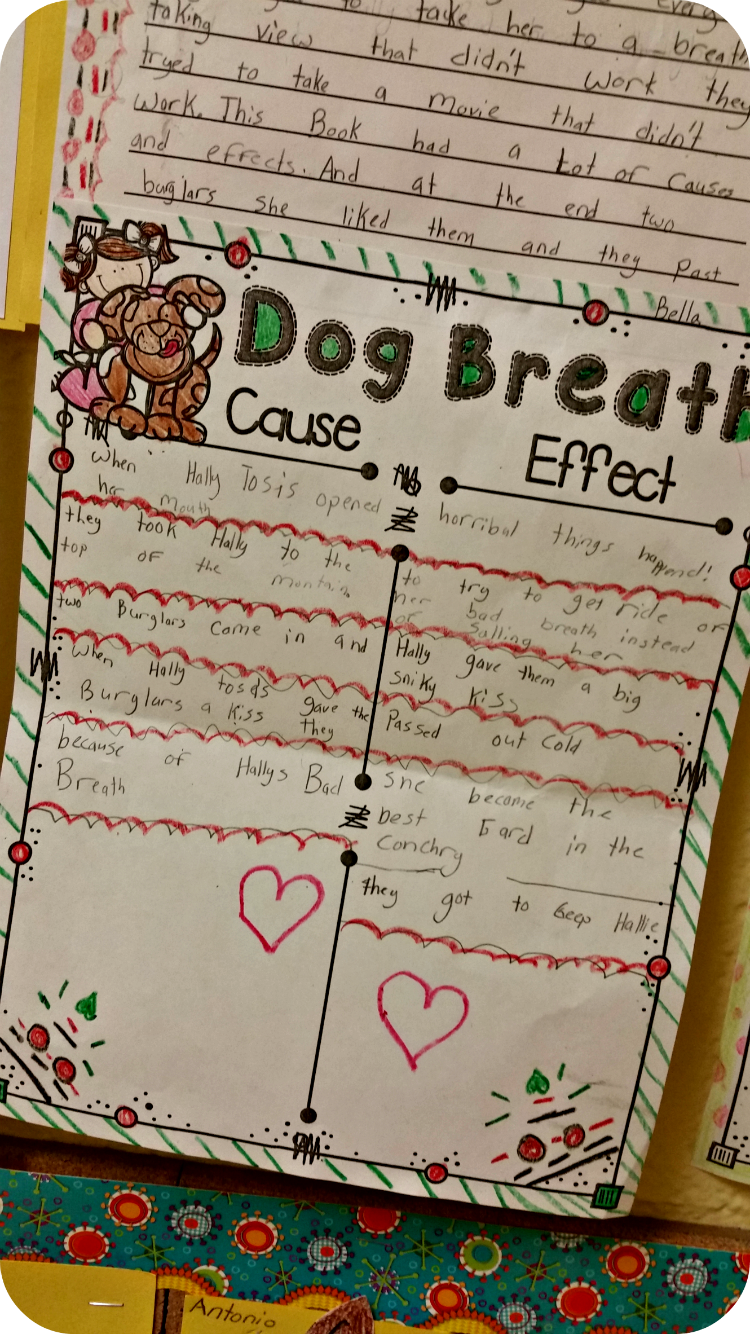 to take her to a breath
taking view that didn't work they
tryed to take a movie that didn't
work. This Book had a Lot of Causes
and effects. And at the end two
burglars she liked them and they Past
Bella
Dog Breath
Cause
Effect
When Hally Tosis opened
her mouth
horribal things happend!
they took Hally to the
top of the montain
to try to get ride of
her bad breath instead
of Salling her
two Burglars come in and
Hally gave them a big
sniky kiss
When Hally tosds gave the
Burglars a kiss they
Passed out cold
because of Hallys Bad
Breath
she become the
best Gard in the
Conchry
they got to keep Hallie
Antonio